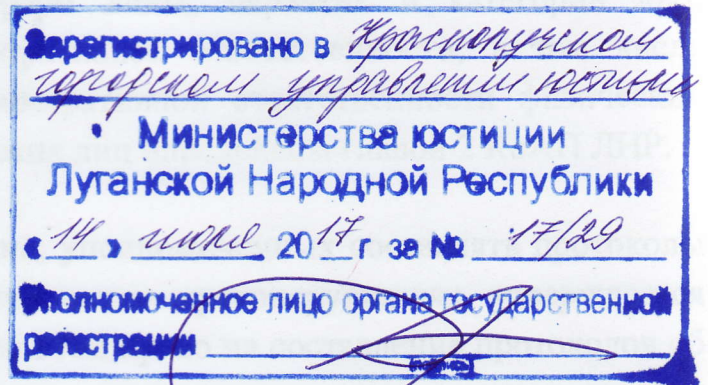 Зарегистрировано в Краснолучском
городском управлении юстиции
Министерства юстиции
Луганской Народной Республики
« 14 » июля 2017 г. за № 17/29
Уполномоченное лицо органа государственной
регистрации
(подпись)